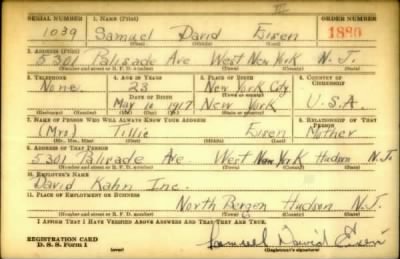 SERIAL NUMBER 1. NAME (Print) ORDER NUMBER
1039 Samuel David Eisen 1880
(First) (Middle) (Last)
2. ADDRESS (Print)
5301 Palisade Ave West New York N.J.
(Number and street or R. F. D. number) (Town) (County) (State)
3. TELEPHONE 4. AGE IN YEARS 5. PLACE OF BIRTH 6. COUNTRY OF CITIZENSHIP
None. 23 New York City
DATE OF BIRTH (Town or county)
May 10 1917 New York U.S.A.
(Exchange) (No.) (Mo.) (Day) (Yr.) (State or country)
7. NAME OF PERSON WHO WILL ALWAYS KNOW YOUR ADDRESS 8. RELATIONSHIP OF THAT PERSON
(Mrs) Tillie Eisen Mother
(Mr., Mrs., Miss) (First) (Middle) (Last)
9. ADDRESS OF THAT PERSON
5301 Palisade Ave West New York Hudson N.J.
(Number and street or R. F. D. number) (Town) (County) (State)
10. EMPLOYER'S NAME
David Kahn Inc.
11. PLACE OF EMPLOYMENT OR BUSINESS
North Bergen Hudson N.J.
(Number and street or R. F. D. number) (Town) (County) (State)
I AFFIRM THAT I HAVE VERIFIED ABOVE ANSWERS AND THAT THEY ARE TRUE.
REGISTRATION CARD Samuel David Eisen
D. S. S. Form 1 (over) (Registrant's signature)